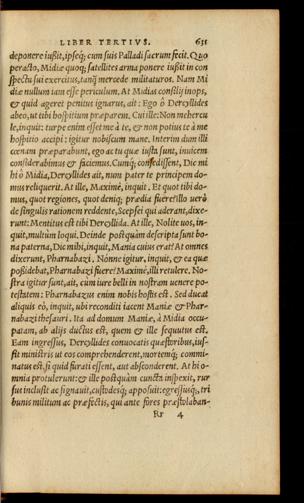 LIBER TERTIVS. 631
deponere iußit, ipseq́; cum suis Palladi sacrum fecit. Quo
peracto, Midiæ quoq; satellites arma ponere iußit in con
spectu sui exercitus, tanq́ mercede militaturos. Nam Mi
diæ nullum iam esse periculum. At Midias consilij inops,
& quid ageret penitus ignarus, ait: Ego ô Dercyllides
abeo, ut tibi hospitium præparem. Cui ille: Non mehercu
le, inquit: turpe enim esset me à te, & non potius te à me
hospitio accipi: igitur nobiscum mane. Interim dum illi
cœnam præparabunt, ego ac tu quæ iusta sunt, inuicem
considerabimus & faciemus. Cumq́; consedissent, Dic mi
hi ô Midia, Dercyllides ait, num pater te principem do-
mus reliquerit. At ille, Maximè, inquit. Et quot tibi do-
mus, quot regiones, quot deniq; prædia fuere? illo uerò
de singulis rationem reddente, Scepsei qui aderant, dixe-
runt: Mentitus est tibi Dercyllida. At ille, Nolite uos, in-
quit, multùm loqui. Deinde postquàm descripta sunt bo-
na paterna, Dic mihi, inquit, Mania cuius erat? At omnes
dixerunt, Pharnabazi. Nónne igitur, inquit, & ea quæ
poßidebat, Pharnabazi fuere? Maximè, illi retulere. No-
stra igitur sunt, ait, cum iure belli in nostram uenere po-
testatem: Pharnabazus enim nobis hostis est. Sed ducat
aliquis eò, inquit, ubi reconditi iacent Maniæ & Phar-
nabazi thesauri. Ita ad domum Maniæ, à Midia occu-
patam, ab alijs ductus est, quem & ille sequutus est.
Eam ingressus, Dercyllides conuocatis quæstoribus, ius-
sit ministris ut eos comprehenderent, mortemq́; commi-
natus est, si quid furati essent, aut absconderent. At hi o-
mnia protulerunt: & ille postquàm cuncta inspexit, rur
sus inclusit ac signauit, custodesq́; apposuit: egressusq́;, tri
bunis militum ac præfectis, qui ante fores præstolaban-
Rr 4